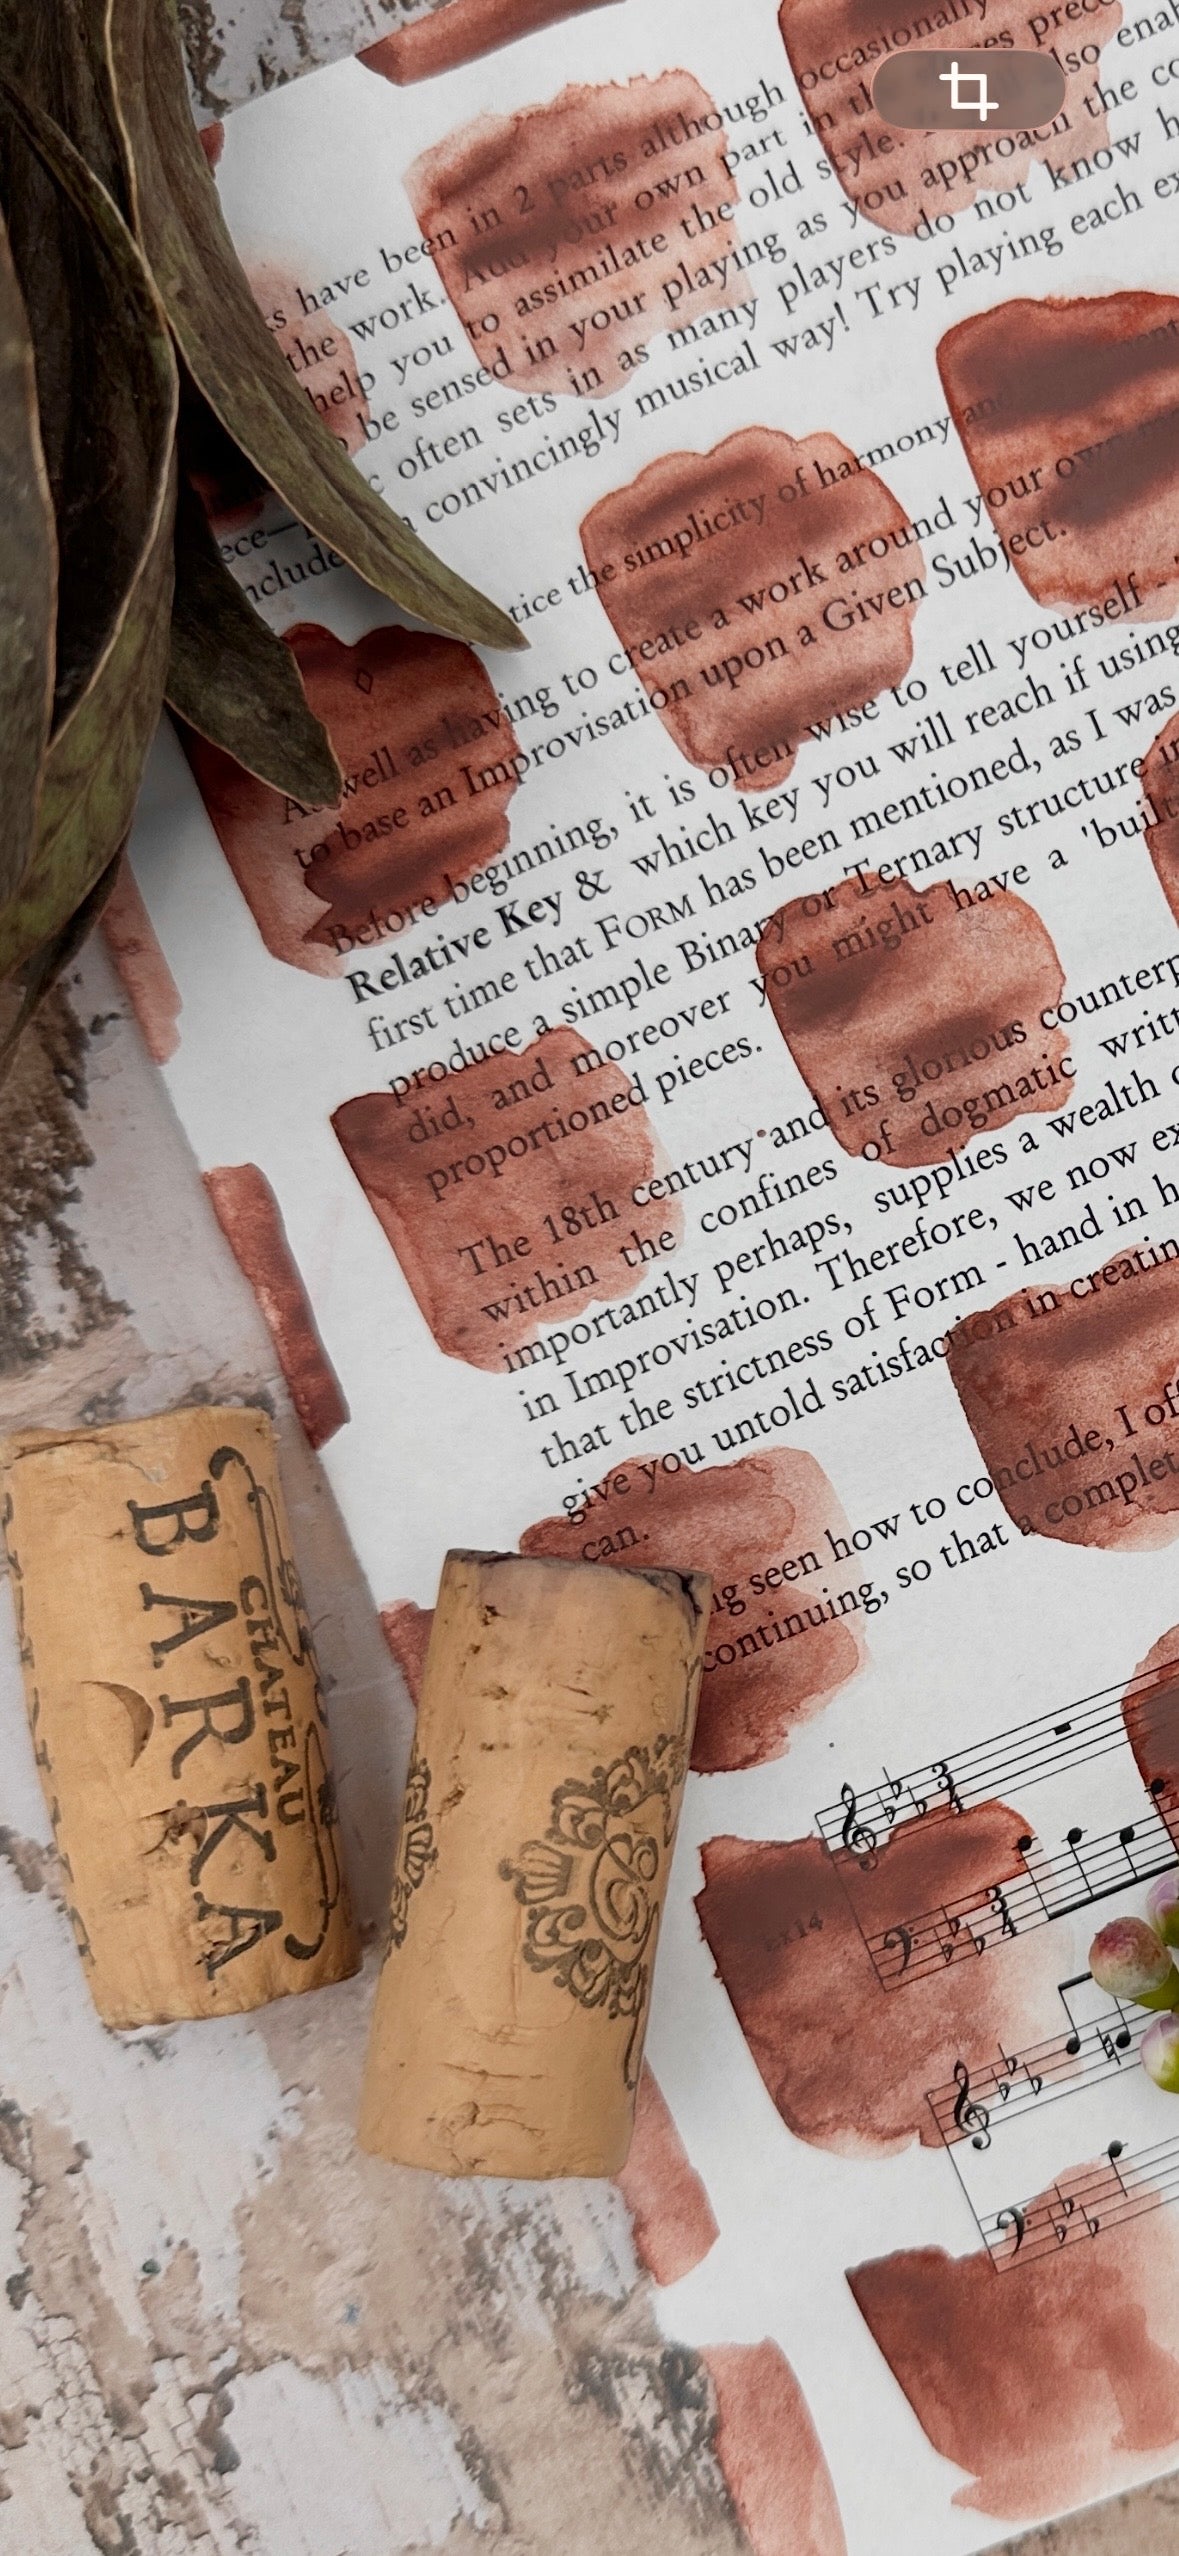 occasionally
have been in 2 parts although
the work. Add your own part in
help you to assimilate the old style.
be sensed in your playing as you approach the
often sets in as many players do not know
convincingly musical way! Try playing each
the simplicity of harmony and
As well as having to create a work around your own
to base an Improvisation upon a Given Subject.
Before beginning, it is often wise to tell yourself -
Relative Key & which key you will reach if using
first time that FORM has been mentioned, as I was
produce a simple Binary or Ternary structure
did, and moreover you might have a 'built
proportioned pieces.
The 18th century and its glorious
within the confines of dogmatic
importantly perhaps, supplies a wealth
in Improvisation. Therefore, we now
that the strictness of Form - hand in
give you untold satisfaction in creating
can.
seen how to conclude, I
continuing, so that a
Ex14
CHATEAU
BARKA